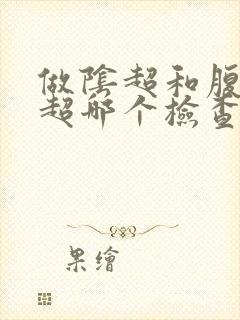 做陰超和腹
超哪个檢查
果繪